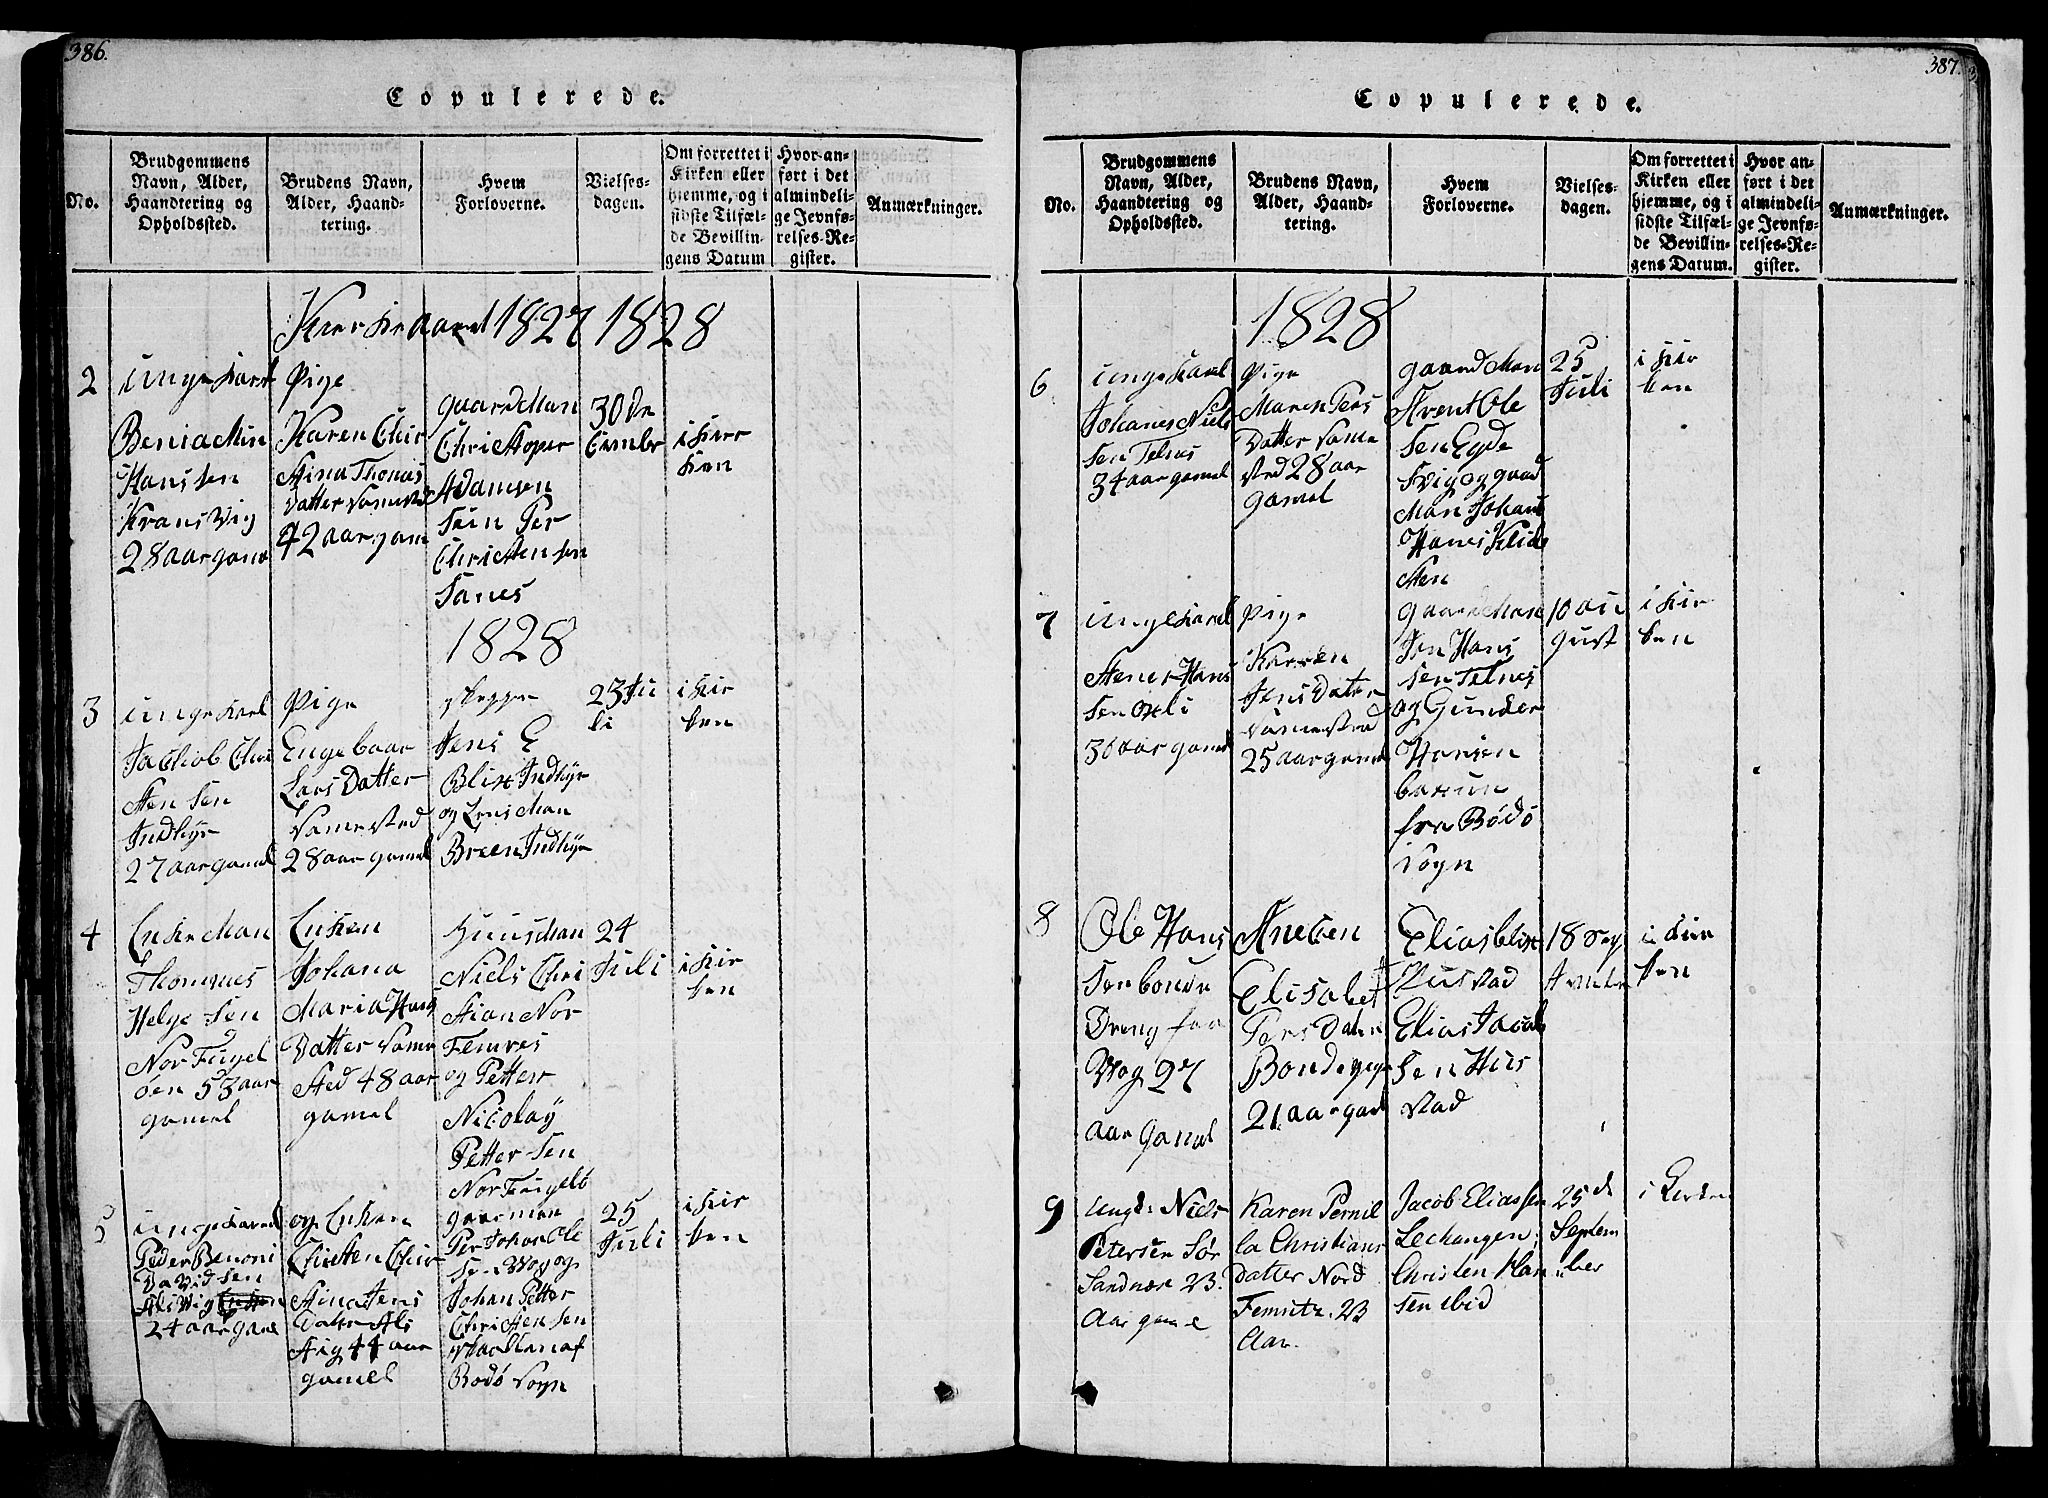 386.
Copulerede.
No.
Brudgommens
Navn, Alder,
Haandtering og
Opholdssted.
Brudens Navn,
Alder, Haand-
tering.
Hvem
Forloverne.
Vielses-
dagen.
Om forrettet i
Kirken eller
hjemme, og i
sidste Tilfæl-
de Bevillin-
gens Datum
Hvor an-
ført i det
almindeli-
ge Jevnfø-
relses-Re-
gister.
Anmærkninger.
1827 1828
2
unge karl
Beniamin
Hans sen
Kransvig
28 aar gamel
Pige
Karen Chir
Stina Thomas
Datter samested
42 aar gam
gaard Man
Christoper
Adamsen
Sein Per
Christen sen
Sanes
30 De
Cember
i Kier
ken
1828
3
unge karl
Jachob Chri
sten sen
Indhyr
27 aar gamel
Pige
Engebaar
Lars Datter
samested
28 aar gamel
skepper
Jens E
Blix Indhyr
og Lens Man
Breen Indhyr
23 Ju
li
i Kir
ken
4
Enke Man
Thommes
Helge sen
Nor Fugel
øen 53 aar
gamel
Enken
Johana
Maria Hans
Datter Same
sted 48 aar
gamel
Huus Man
Niels Chri
stian Nor
Femres
og Petter
Nicolay
Petter sen
Nor Fugelø
24
Juli
i Kir
ken
5
unge karel
Peder Benoni
David sen
Alsvig
24 aar gamel
og Enken
Chirsten Chir
stina Jens
Datter Als
vig 44 aar
gamel
gaarman
Per Johan Ole
sen Vog og
Johan Petter
Christen sen
af
Bodø Sogn
25
Juli
i Kir
ken
387.
Copulerede.
No.
Brudgommens
Navn, Alder,
Haandtering og
Opholdssted.
Brudens Navn,
Alder, Haand-
tering.
Hvem
Forloverne.
Vielses-
dagen.
Om forrettet i
Kirken eller
hjemme, og i
sidste Tilfæl-
de Bevillin-
gens Datum.
Hvor an-
ført i det
almindeli-
ge Jevnfø-
relses-Re-
gister.
Anmærkninger.
1828
6
unge karel
Johanes Niels
sen Telnes
34 aar gamel
Pige
Maren Pers
Datter same
sted 28 aar
gamel
gaard Man
Arent Ole
sen Egde
svig og gaard
Man Johanes
Hanes Klide
sten
25
Juli
i Kir
ken
7
unge karel
Stener Hans
sen Oxli
36 aar gamel
Pige
Karren
Jens Dater
samested
25 aar gamel
gaard Man
Jon Hans
sen Telnes
og Gunder
Hansen
fra Bodø
Sogn
10 au
gust
i Kir
ken
8
Ole Hans
sen bonde
Dreng fra
Vog 27
aar gamel
Anechen
Elisabet
Pers Daten
Bonde pige
21 aar gamel
Elias Blix
Husstad
Elias Jacob
sen Hus
stad
18 Sep
tember
i Kir
ken
9
Ungk. Niels
Petersen Sør
Sandnæs 23.
Aar gamle
Karen Pernil
la Christians
datter Nord
Femritz. 23
Aar.
Jacob Eliassen
Lechangen;
Christen Han
sen ibid
25 d
Septem
ber
i Kirken